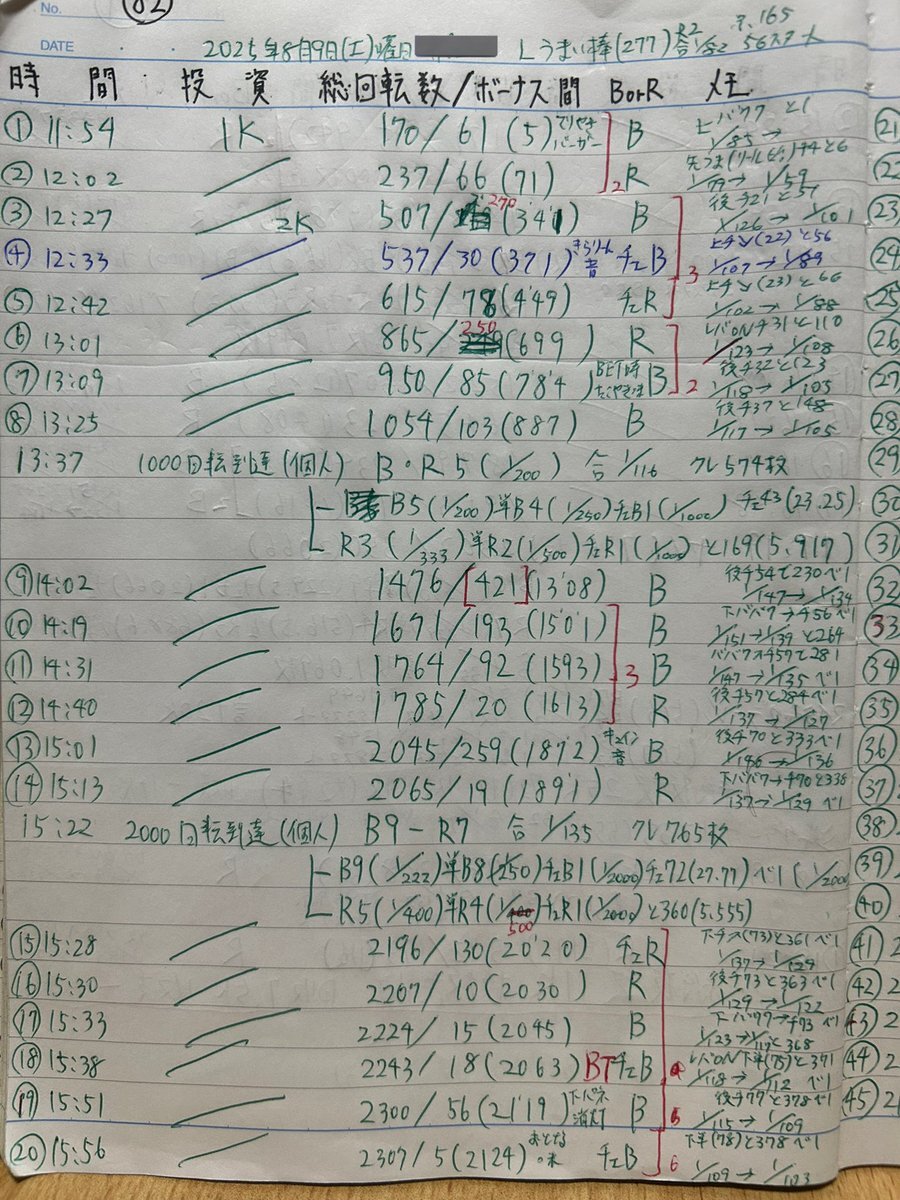 No.
82
DATE 2025年8月9日(土)曜日 Lうまい棒(277)
時間 投資 総回転数/ボーナス間 BorR メモ
① 11:54 1K 170/61(5) てりやきバーガー B
1/85→
② 12:02 237/66(71) R
1/79→1/59
2
③ 12:27 2K 507/270(341) B
後チ21と57
1/126→1/101
④ 12:33 537/30(371) チェB
(22)と56
1/107→1/89
3
⑤ 12:42 615/78(449) チェR
(23)と66
1/102→1/88
⑥ 13:01 865/250(699) R
レバONチ31と110
1/123→1/108
⑦ 13:09 950/85(784) BET時 B
後チ32と123
1/118→1/105
2
⑧ 13:25 1054/103(887) B
後チ37と148
1/117→1/105
13:37 1000回転到達(個人) B・R5(1/200) 合1/116 クレ574枚
B5(1/200)単B4(1/250)チェB1(1/1000)チェ43(23.25)
R3(1/333)単R2(1/500)チェR1(1/1000)と169(5.917)
⑨ 14:02 1476/[421](1308) B
後チ54て230べ1
1/147→1/134
⑩ 14:19 1671/193(1501) B
1/151→1/139と264
⑪ 14:31 1764/92(1593) B
1/147→1/135べ1
3
⑫ 14:40 1785/20(1613) R
後チ57と284べ1
1/137→1/127
⑬ 15:01 2045/259(1872) キュイン音 B
後チ70と333べ1
1/146→1/136
⑭ 15:13 2065/19(1891) R
1/137→1/129べ1
15:22 2000回転到達(個人) B9-R7 合1/135 クレ765枚
B9(1/222)単B8(1/250)チェB1(1/2000)チェ72(27.77)べ1(1/2000
R5(1/400)単R4(1/500)チェR1(1/2000)と360(5.555)
⑮ 15:28 2196/130(2020) チェR
(73)と361べ1
1/137→1/129
⑯ 15:30 2207/10(2030) R
後チ73と363べ1
1/129→1/122
⑰ 15:33 2224/15(2045) B
1/123→1/117と368
⑱ 15:38 2243/18(2063) BTチェB
(75)と371
1/118→1/112べ1
⑲ 15:51 2300/56(2119) 下パネ消灯 B
後チ77と378べ1
1/115→1/109
5
⑳ 15:56 2307/5(2124) チェB
(78)と378べ1
1/109→1/103
6